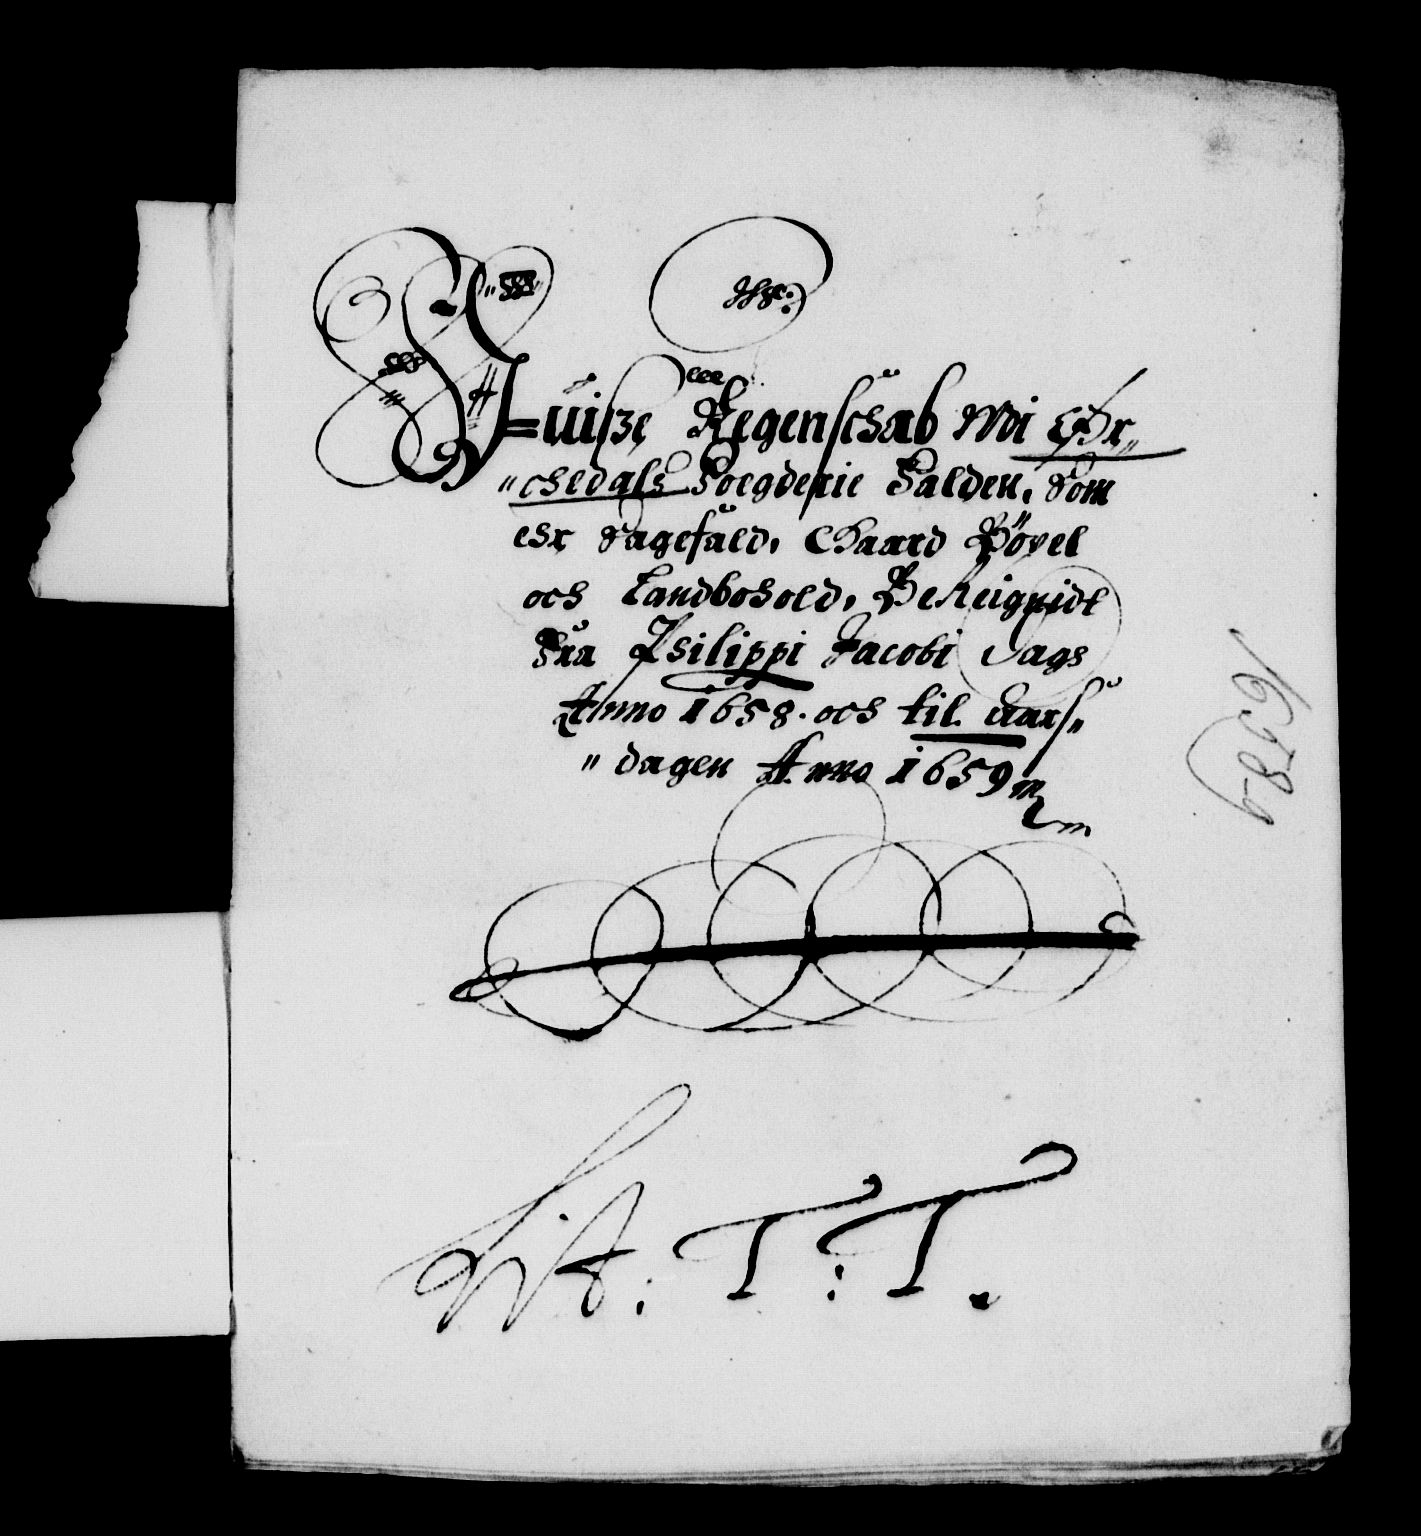 Uisze Regenschab udi Ør„
„chedals Foegderie Falden, Som
ehr Sagefald, Ehaard Böxel
och Landbohold, Bereignidt
Fra Philippi Jacobi Dags
Anno 1658. och til Aars„
„dagen Anno 1659
1658-9
Lit: T: T.